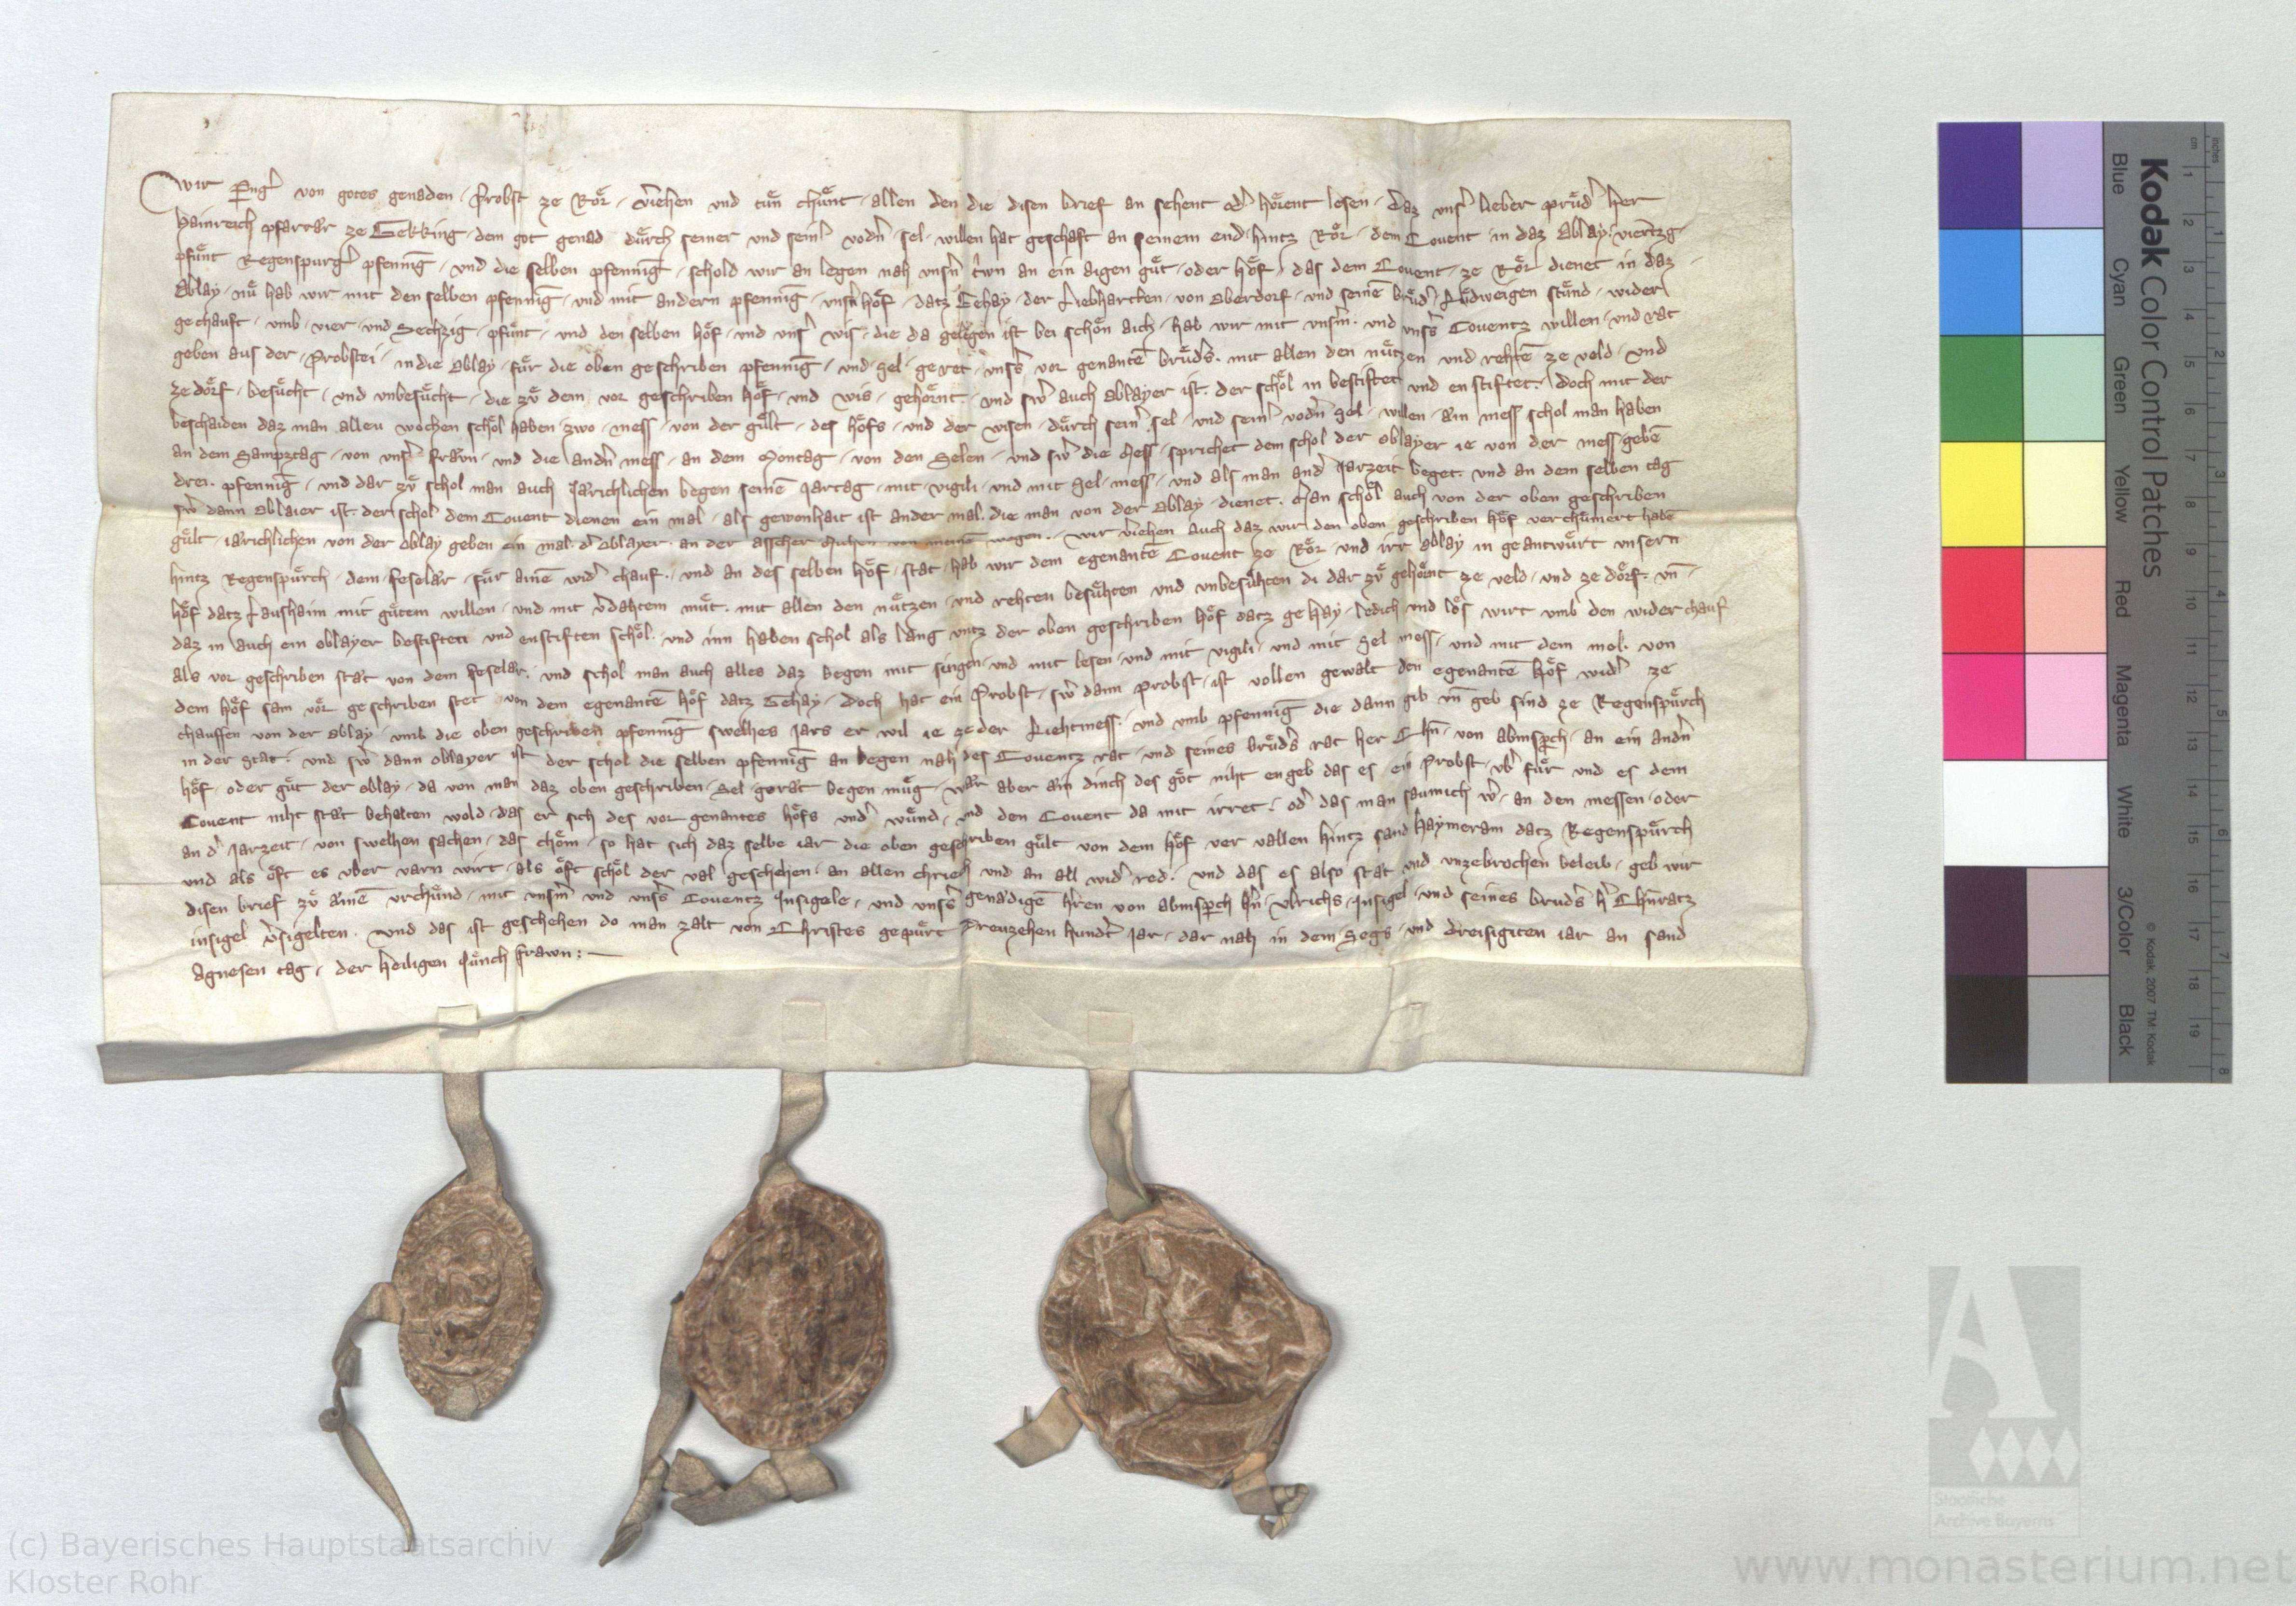 Wir P̱ngˀ von gotes genaden · Probst ze Roͤr · vˀiehen und tuͤn chuͤnt · allen den die disen brief an sehent odˀ hoͤrent lesen · daz unsˀ lieber pruͤdˀ her
Hainreich pfarrar ze Gekking · dem got genad duͤrch seiner und seinˀ vodˀn · sel · willen hat geschaft an seinem end · hintz Roͤr · dem Covent in daz Oblay · viertzg
pfuͤnt Regenspurgˀ pfenniḡ · und die selben pfenniḡ · schold wir an legen nah unsˀn tˀwn an ein aigen guͤt · oder hoͤf · das dem Covent · ze Roͤr dienet in daz
Oblay · nuͤ hab wir mit den selben pfenniḡ · und mit andern pfenniḡ · unsˀn hoͤf · datz Gehay · der Liebharten · von Oberdorf · und seinē bruͤdˀ Ludweigen stuͤnd · wider
gechauft · umb · vier · und Sechzig · pfuͤnt · und den selben hoͤf · und unsˀ wis · die da gelegen ist bei schoͤn aich · hab wir mit unsˀm · und unsˀs Coventz willen · und rat
geben aus der · Probstei · in die Oblay · fuͤr die oben geschriben pfenniḡ · und sel · geret · unsˀs vor genantē bruͤdˀs · mit allen den nuͤtzen und rehtē ze veld · und
ze doͤrf · besuͤcht · und unbesuͤcht · die zuͤ dem vor geschriben hoͤf · und wis · gehoͤrnt · und swˀ auch oblayer ist · der schoͤl in bestiftet und enstiftet · doch mit der
beschaiden daz man allen wochen schoͤl haben zwo · mess · von der guͤlt · des hoͤfs · und der wisen · duͤrch seinˀ sel · und seinˀ vodˀn sel · willen · ain mess schol man haben
an dem Sampztag · von unsˀ fravn · und die andˀn mess · an dem Montag · von den Selen · und swˀ die Mess · sprichet dem schol der oblayer ie von der mess gebē
drei · pfenniḡ · und dar zuͤ schol man auch Jarichlichen begen seinē Jartag · mit · vigili · und mit sel · mess · und als man andˀ Jarzeit beget · und an dem selben tag
swˀ dann oblaier ist · der schol dem Covent dienen ein mal · als gewonhait ist ander mal · die man von der Oblay · dienet · Man schoͤl auch von der oben geschriben
guͤlt · iarichlichen von der oblay geben ein mal · dˀ oblayer · an der asscher wegen · wir vˀiehen auch daz wir den oben geschriben hoͤf verchumert habē
hintz Regenspuͤrch · dem · feselar · fuͤr ainē widˀ chauf · und an des selben hoͤf · stat · hab wir dem egenantē Covent ze Roͤr · und irr oblay in geantwuͤrt unsern
hoͤf datz Laushaim mit guͤtem willen · und mit vˀdahtem muͤt · mit allen den nuͤtzen · und rehten besuͤhten und unbesuͤhten di dar zuͤ gehoͤrnt ze veld · und ze doͤrf · un̄
daz in auch ein oblayer bestiften und enstiften schoͤl · und inn haben schol als lang untz der oben geschriben hoͤf datz gehay · ledich und loͤs wirt umb den wider chauf
als vor geschriben stat von dem feselar · und schol man auch alles daz begen mit singen · und mit lesen · und mit vigili · und mit sel mess · und mit dem mol · von
dem hoͤf sam voͤr geschriben stet von dem egenantē hoͤf datz Gehay · doch hat ein Probst · swˀ dann Probst · ist vollen gewalt den egenantē hoͤf widˀ ze
chauffen von der oblay · umb die oben geschriben pfenniḡ swelhes Jars er wil ie ze der Liehtmess · und umb pfenniḡ die dann gib un̄ geb sind ze Regenspuͤrch
in der stat · und swˀ dann oblayer ist der schol die selben pfenniḡ an legen nah des Coventz rat · und seines bruͤdˀs rat her Chn̄ · von abmsp̱ch · an ein andˀn
hoͤf · oder guͤt der oblay · da von man daz oben geschriben · Sel · gerat begen muͤg · war aber ain dinch des goͤt niht en geb das es · ein Probst · ubˀ fuͤr und es dem
Covent niht stat behalten wold · das er sich des vor genantes hoͤfs undˀ wuͤnd · und den Covent da mit irret · odˀ das man saumich wˀ · an den messen · oder
an dˀ Jarzeit · von swelhen sachen · das choͤm · so hat sich daz selbe iar die oben geschriben guͤlt von dem hoͤf ver vallen hintz sand Haymeram datz Regenspuͤrch
und als oͤft es uber varn wirt · als oͤft schoͤl der val geschehen · an allen chrieh und an all widˀ red · und das es also stat und unzebrochen beleib · geb wir
disen brief zuͤ ainē urchuͤnd · mit unsˀm und unsˀs Coventz Insigele · und unsˀs genadigē hˀren von abmsp̱ch hˀn ulrichs · Insigel · und seines brudˀs hˀ Chunratz
insigel vˀsigelten · und das ist geschehen do man zalt von Christes gepuͤrt Dreuzehen hundˀt Jar · dar nah in dem · Segs · und dreisigisten iar an sand
Agnesen tag · der heiligen Juͤnch frawn : —
Kodak Color Control Patches
Blue Cyan Green Yellow Red Magenta White 3/Color Black
© Kodak, 2007 TM: Kodak
cm 1 2 3 4 5 6 7 8 9 10 11 12 13 14 15 16 17 18 19
inches 1 2 3 4 5 6 7 8
Staatliche
Archive Bayerns
(c) Bayerisches Hauptstaatsarchiv
Kloster Rohr
www.monasterium.net